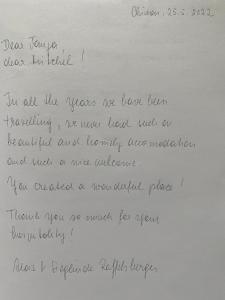 25.5.2022
Dear Tanja,
dear !
In all the years we have been
travelling, we never had such a
beautiful and homely accomodation
and such a nice welcome.
You created a wonderful place!
Thank you so much for your
hospitality!
&